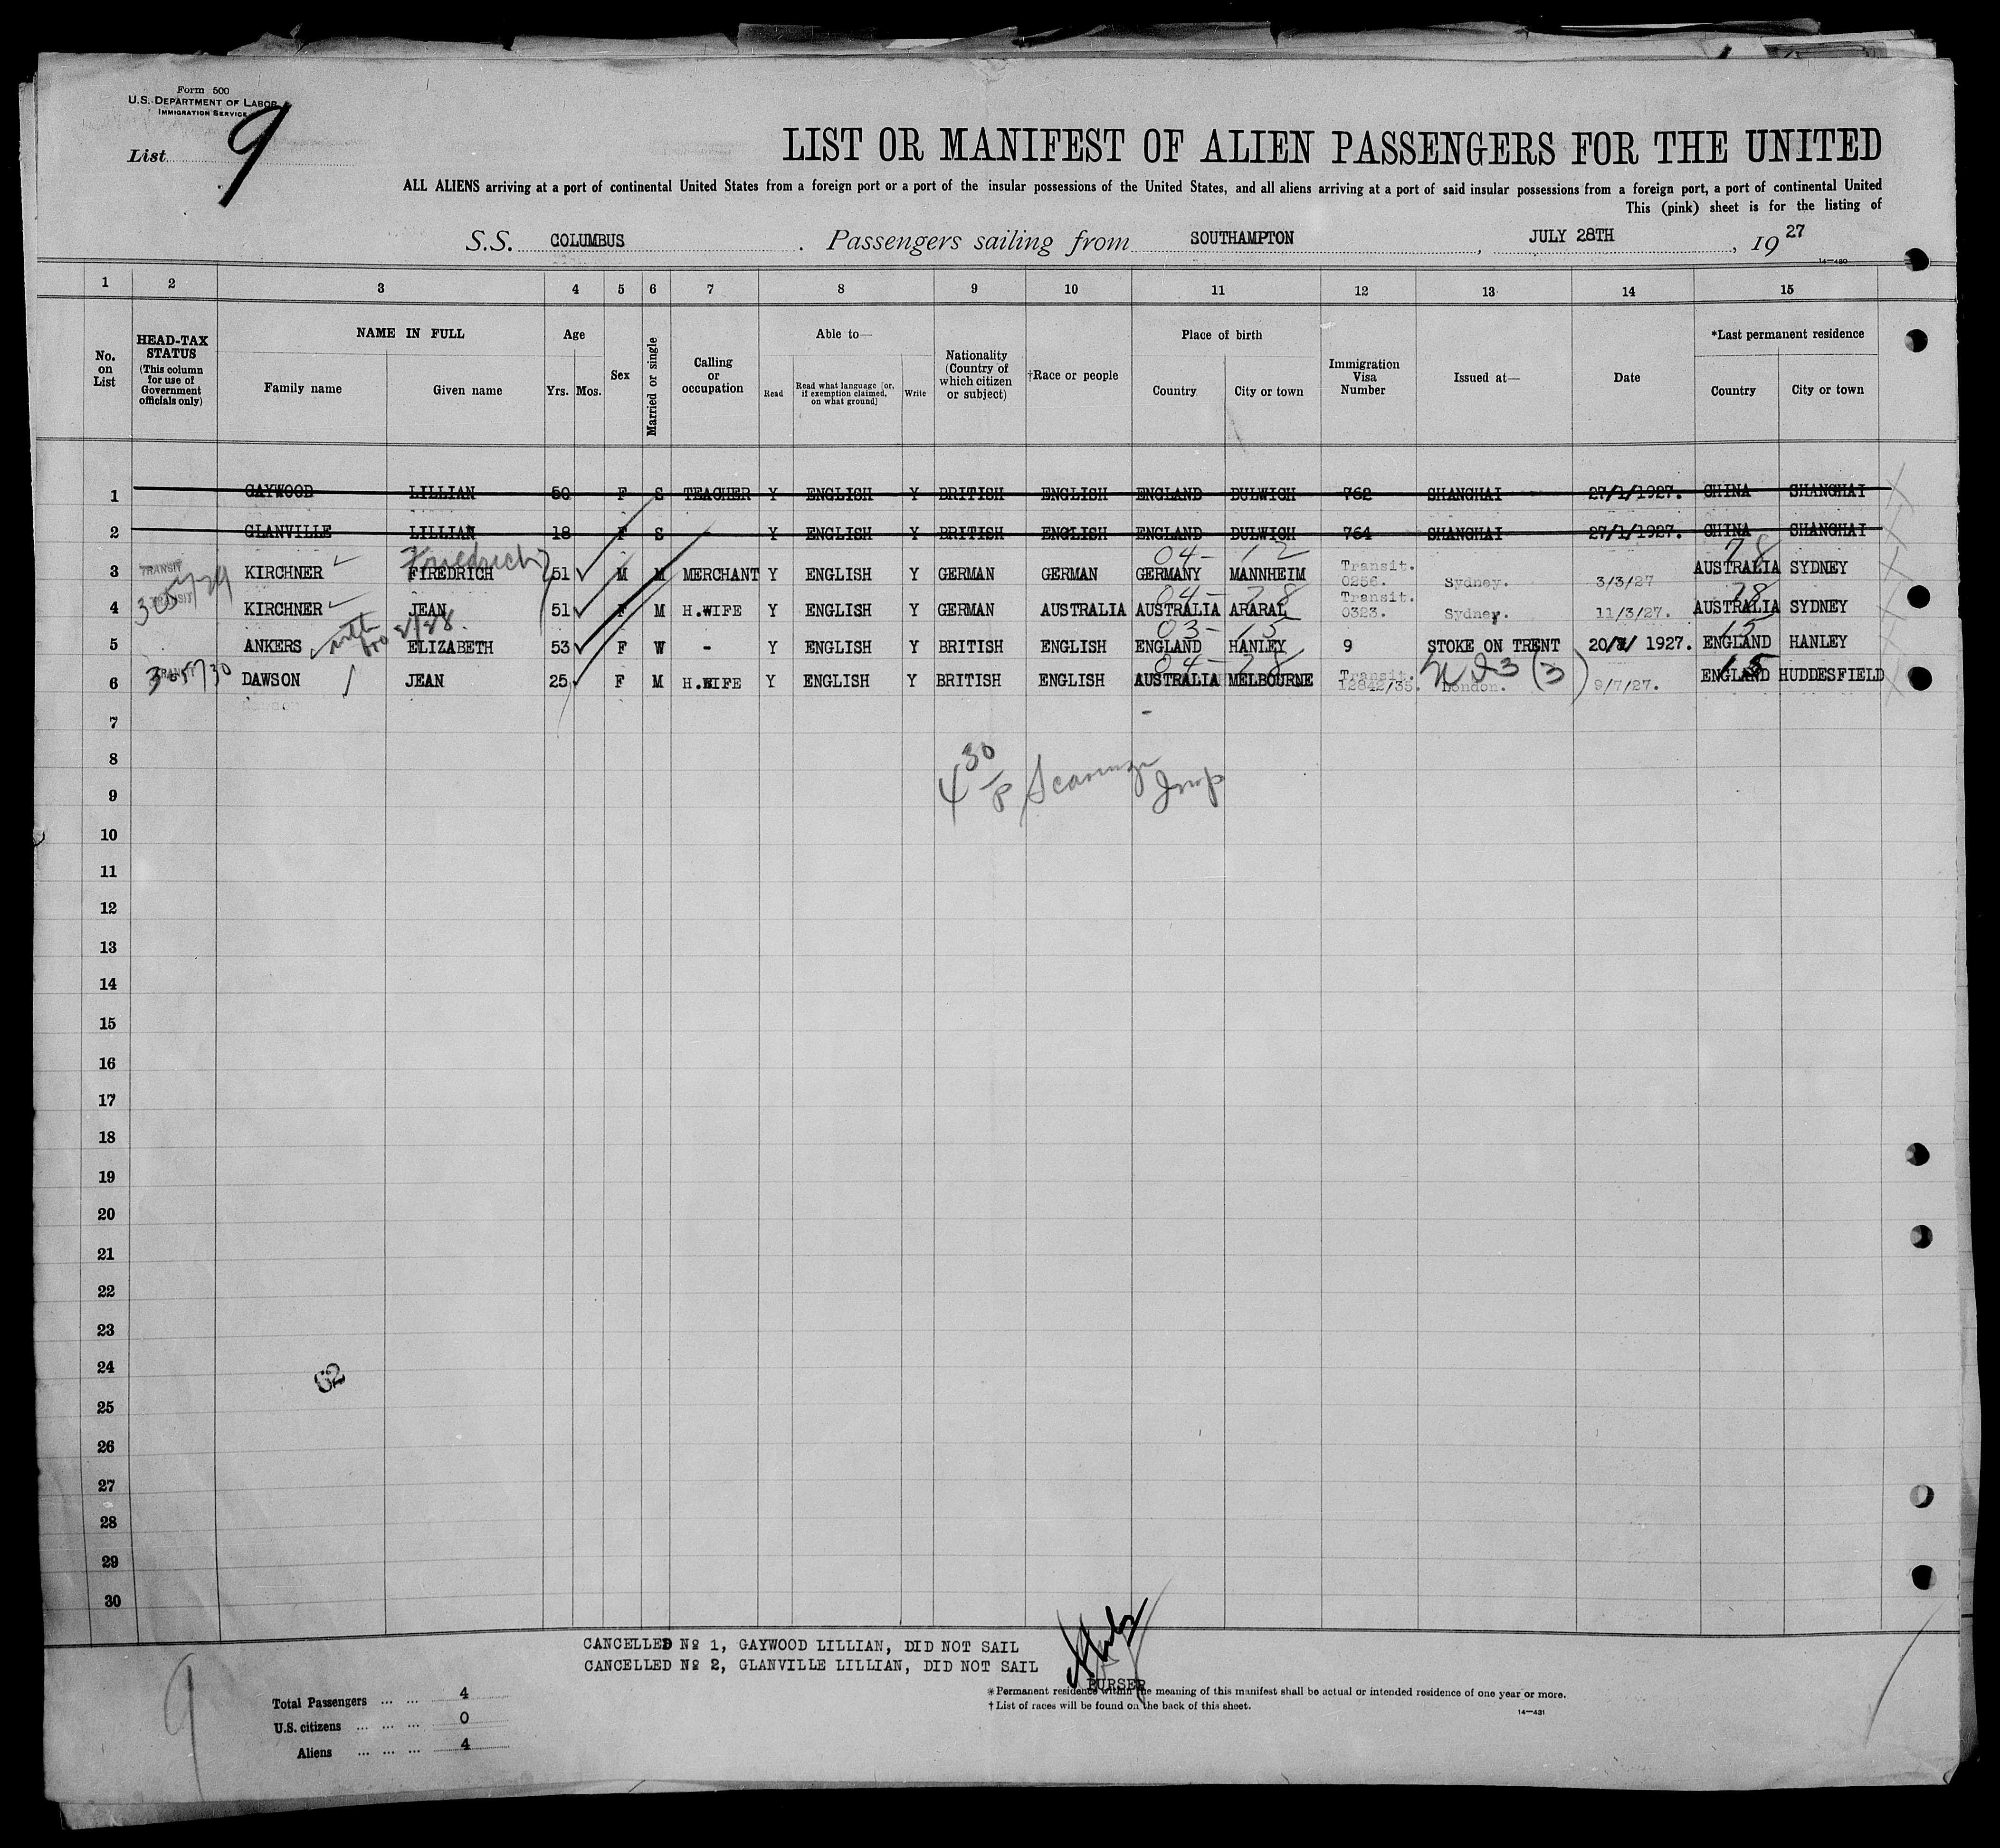 Form 500
U.S. DEPARTMENT OF LABOR
IMMIGRATION SERVICE
List 9
LIST OR MANIFEST OF ALIEN PASSENGERS FOR THE UNITED
ALL ALIENS arriving at a port of continental United States from a foreign port or a port of the insular possessions of the United States, and all aliens arriving at a port of said insular possessions from a foreign port, a port of continental United
This (pink) sheet is for the listing of
S.S. COLUMBUS. Passengers sailing from SOUTHAMPTON, JULY 28TH, 1927
14—480
1 2 3 4 5 6 7 8 9 10 11 12 13 14 15
No. on List
HEAD-TAX STATUS (This column for use of Government officials only)
NAME IN FULL
Family name Given name
Age
Yrs. Mos.
Sex
Married or single
Calling or occupation
Able to—
Read Read what language [or, if exemption claimed, on what ground] Write
Nationality (Country of which citizen or subject)
†Race or people
Place of birth
Country City or town
Immigration Visa Number
Issued at—
Date
*Last permanent residence
Country City or town
1 GAYWOOD LILLIAN 50 F S TEACHER Y ENGLISH Y BRITISH ENGLISH ENGLAND DULWICH 762 SHANGHAI 27/1/1927. CHINA SHANGHAI
2 GLANVILLE LILLIAN 18 F S Y ENGLISH Y BRITISH ENGLISH ENGLAND DULWICH 764 SHANGHAI 27/1/1927. CHINA SHANGHAI
Friedrich 04- 12 78
3 TRANSIT KIRCHNER FIREDRICH 51 M M MERCHANT Y ENGLISH Y GERMAN GERMAN GERMANY MANNHEIM Transit. 0256. Sydney. 3/3/27 AUSTRALIA SYDNEY
04- 78 78
4 TRANSIT KIRCHNER JEAN 51 F M H.WIFE Y ENGLISH Y GERMAN AUSTRALIA AUSTRALIA ARARAL Transit. 0323. Sydney. 11/3/27. AUSTRALIA SYDNEY
03- 15 15
5 ANKERS with ELIZABETH 53 F W - Y ENGLISH Y BRITISH ENGLISH ENGLAND HANLEY 9 STOKE ON TRENT 20/7/ 1927. ENGLAND HANLEY
04- 78 15
6 TRANSIT DAWSON JEAN 25 F M H.WIFE Y ENGLISH Y BRITISH ENGLISH AUSTRALIA MELBOURNE Transit. 12842/35. London. 9/7/27. ENGLAND HUDDESFIELD
7
8
4 30/P
9
10
11
12
13
14
15
16
17
18
19
20
21
22
23
24
62
25
26
27
28
29
30
CANCELLED № 1, GAYWOOD LILLIAN, DID NOT SAIL
CANCELLED № 2, GLANVILLE LILLIAN, DID NOT SAIL
PURSER
9
Total Passengers ... ... 4
U.S. citizens ... ... ... 0
Aliens ... ... ... 4
*Permanent residence within the meaning of this manifest shall be actual or intended residence of one year or more.
†List of races will be found on the back of this sheet.
14—431